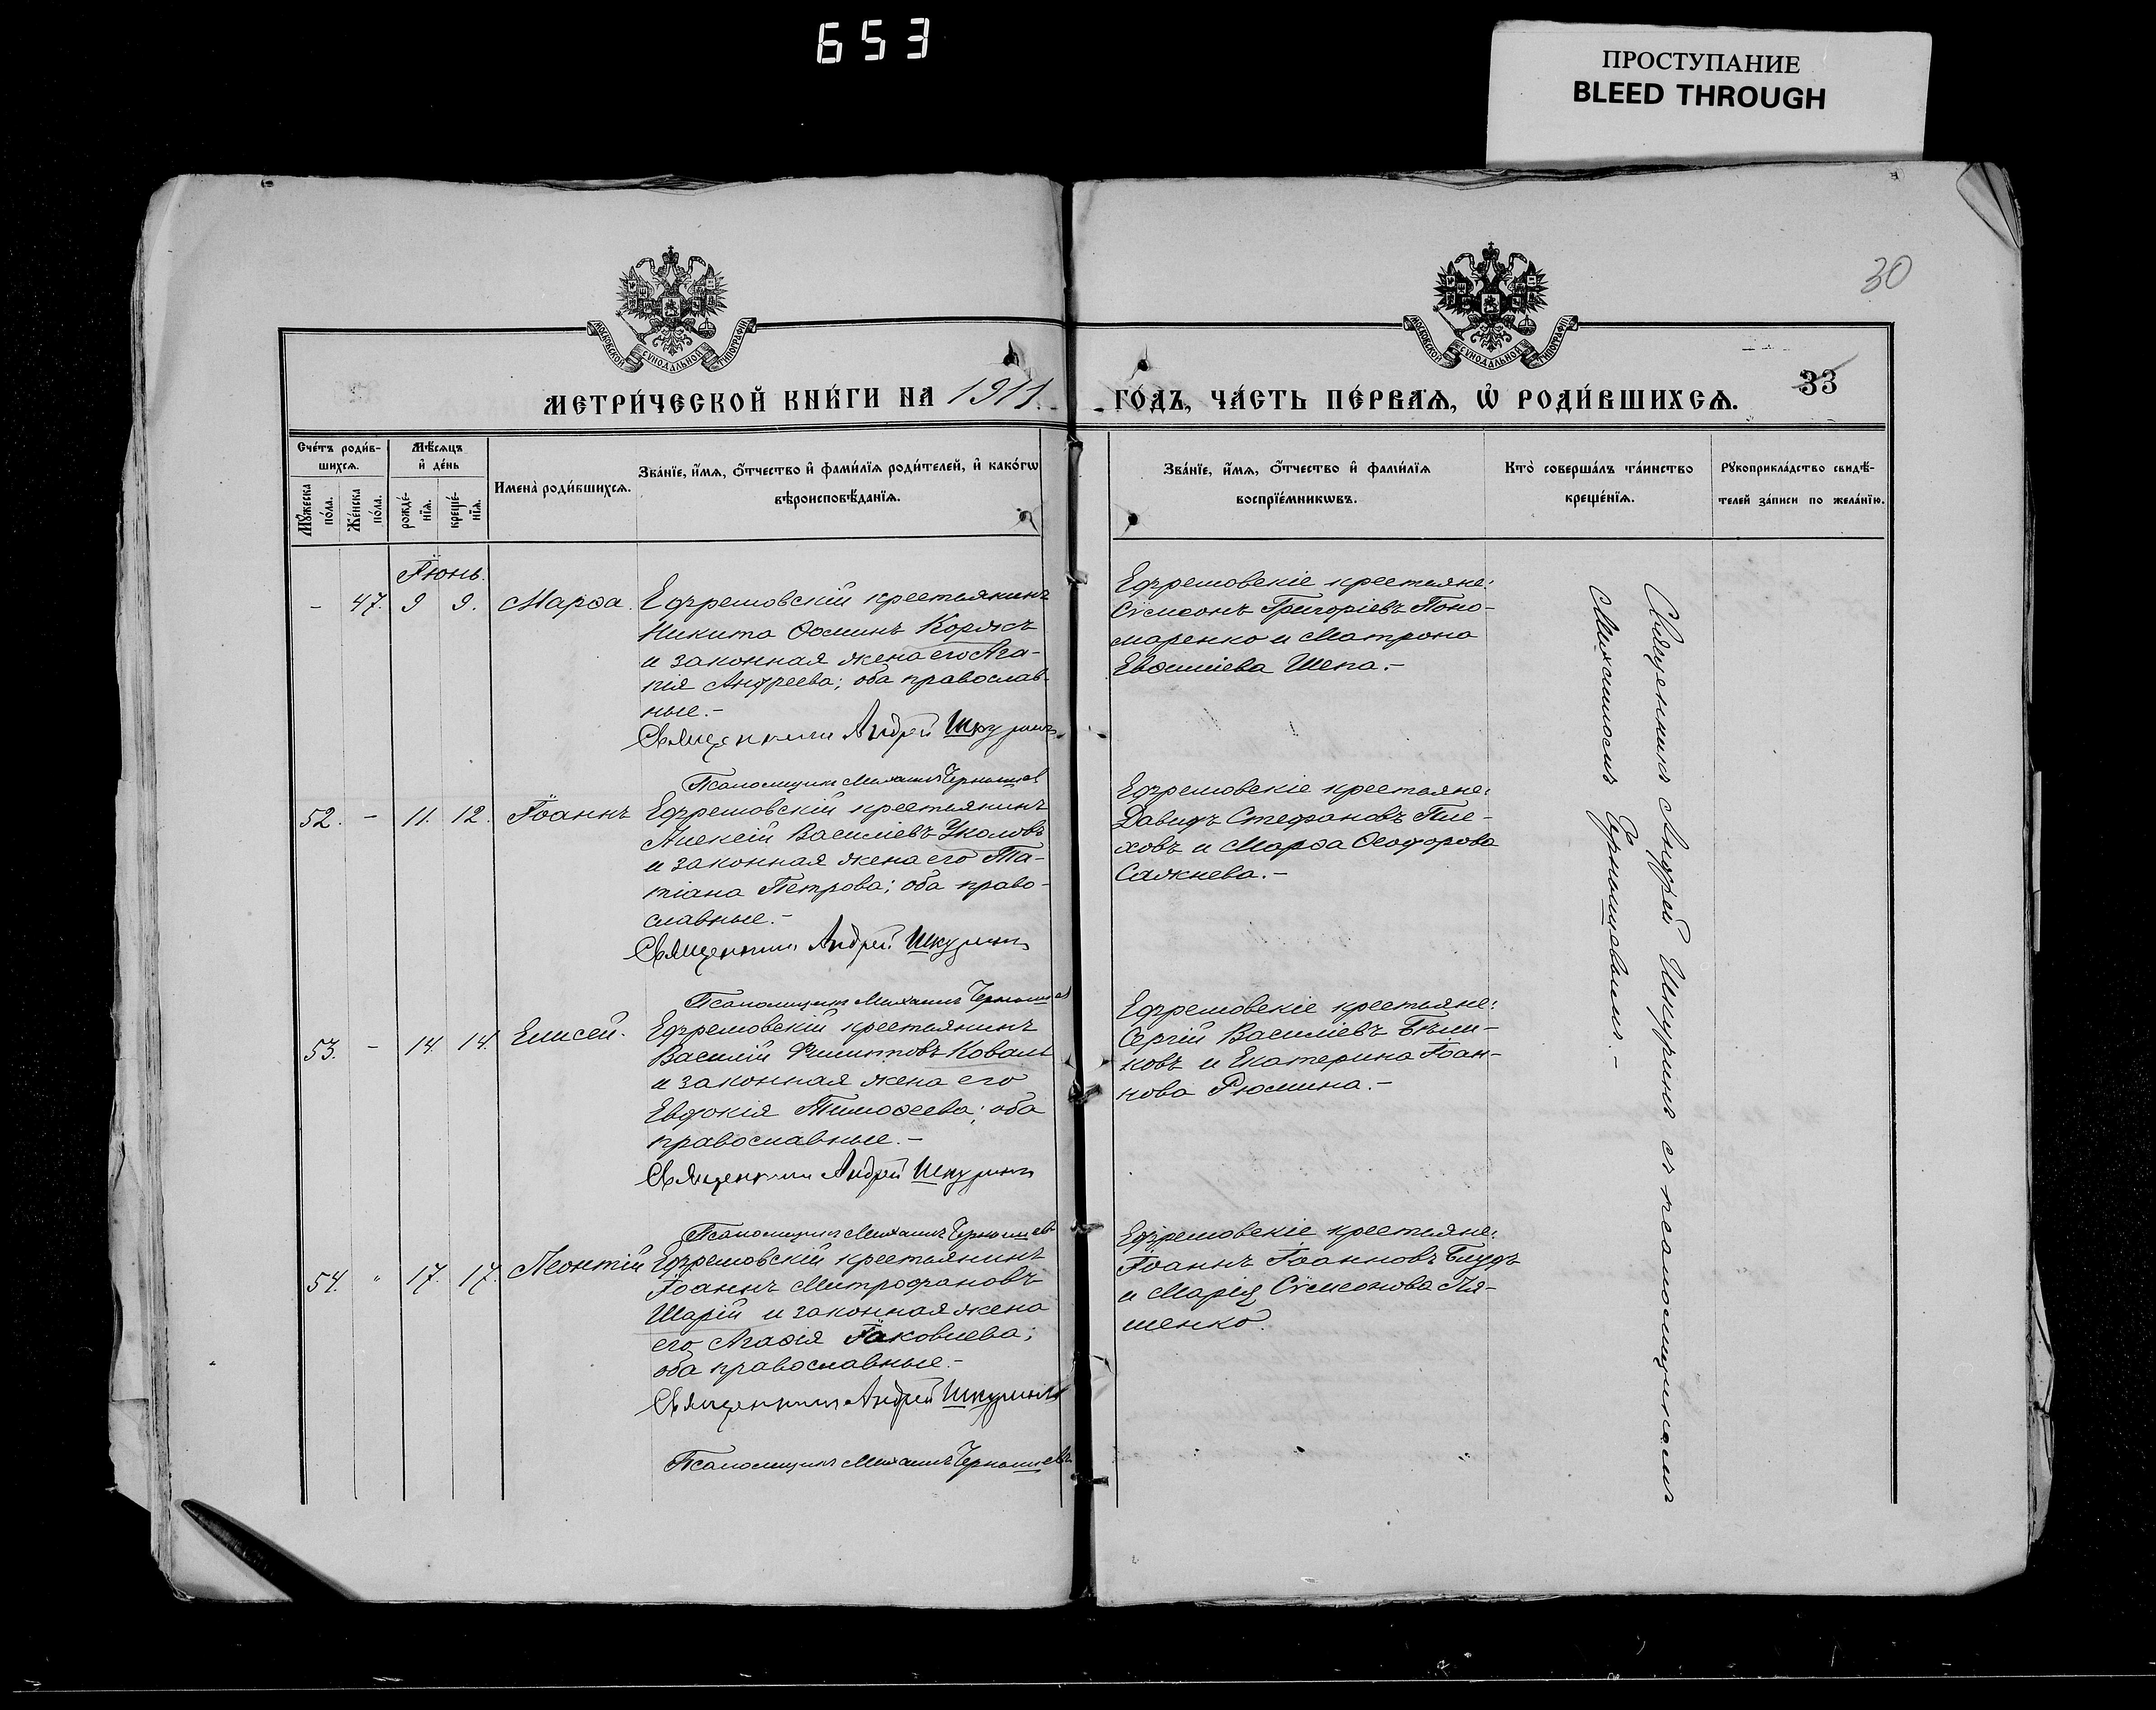 653
ПРОСТУПАНИЕ
BLEED THROUGH
30
МОСКОВСКОЙ СѴНОДАЛЬНОЙ ТИПОГРАФІИ
МОСКОВСКОЙ СѴНОДАЛЬНОЙ ТИПОГРАФІИ
МЕТРИ́ЧЕСКОЙ КНИ́ГИ НА 1911
ГО́ДЪ, ЧА́СТЬ ПЕ́РВАѦ, Ѡ҆ РОДИ́ВШИХСѦ.
33
Сче́тъ роди́в-
шихсѧ.
Мꙋ́жеска
по́ла.
Же́нска
по́ла.
Мѣ́сѧцъ
и҆ де́нь
рожде́-
нїѧ.
креще́-
нїѧ.
Имена̀ роди́вшихсѧ.
Зва́нїе, и҆́мѧ, ѻ҆́тчество и҆ фами́лїѧ роди́телей, и҆ како́гѡ
вѣроисповѣ́данїѧ.
Зва́нїе, и҆́мѧ, ѻ҆́тчество и҆ фами́лїѧ
воспрїе́мникѡвъ.
Кто̀ соверша́лъ та́инство
креще́нїѧ.
Рꙋкоприкла́дство свидѣ́-
телей за́писи по жела́нїю.
Іюнь.
- 47. 9 9. Марѳа.
Ефремовскій крестьянинъ
Никита Ѳоминъ Коржъ
и законная жена его Ага-
пія Андреева; оба православ-
ные.-
Священникъ Андрей Шкуринъ
Псаломщикъ Михаилъ Чернышев
Ефремовскіе крестьяне:
Сѵмеонъ Григоріевъ Поно-
маренко и Матрона
Евѳиміева Шепа.-
52. - 11. 12. Іоаннъ
Ефремовскій крестьянинъ
Алексій Василіевъ Уколовъ
и законная жена его Та-
тіана Петрова; оба право-
славные.-
Священникъ Андрей Шкуринъ
Псаломщикъ Михаилъ Чернышев
Ефремовскіе крестьяне:
Давидъ Стефановъ Пле-
ховъ и Марѳа Ѳеодорова
Сажнева.-
53. - 14. 14. Елисей.
Ефремовскій крестьянинъ
Василій Филиповъ Коваль
и законная жена его
Евдокія Тимоѳеева; оба
православные.-
Священникъ Андрей Шкуринъ
Псаломщикъ Михаилъ Чернышев
Ефремовскіе крестьяне:
Сергій Василіевъ Бѣли-
ковъ и Екатерина Іоан-
нова Рюмина.-
54. " 17. 17. Леонтій
Ефремовскій крестьянинъ
Іоаннъ Митрофановъ
Шарій и законная жена
его Агаѳія Іаковлева;
оба православные.-
Священникъ Андрей Шкуринъ
Псаломщикъ Михаилъ Чернышевъ
Ефремовскіе крестьяне:
Іоаннъ Іоанновъ Блудъ
и Марія Сѵмеонова Ля-
шенко.
Священникъ Андрей Шкуринъ съ псаломщикомъ
Михаиломъ Чернышовымъ.-